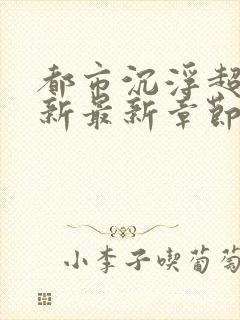 都市沉浮超
新最新章節
小李子喫葡萄